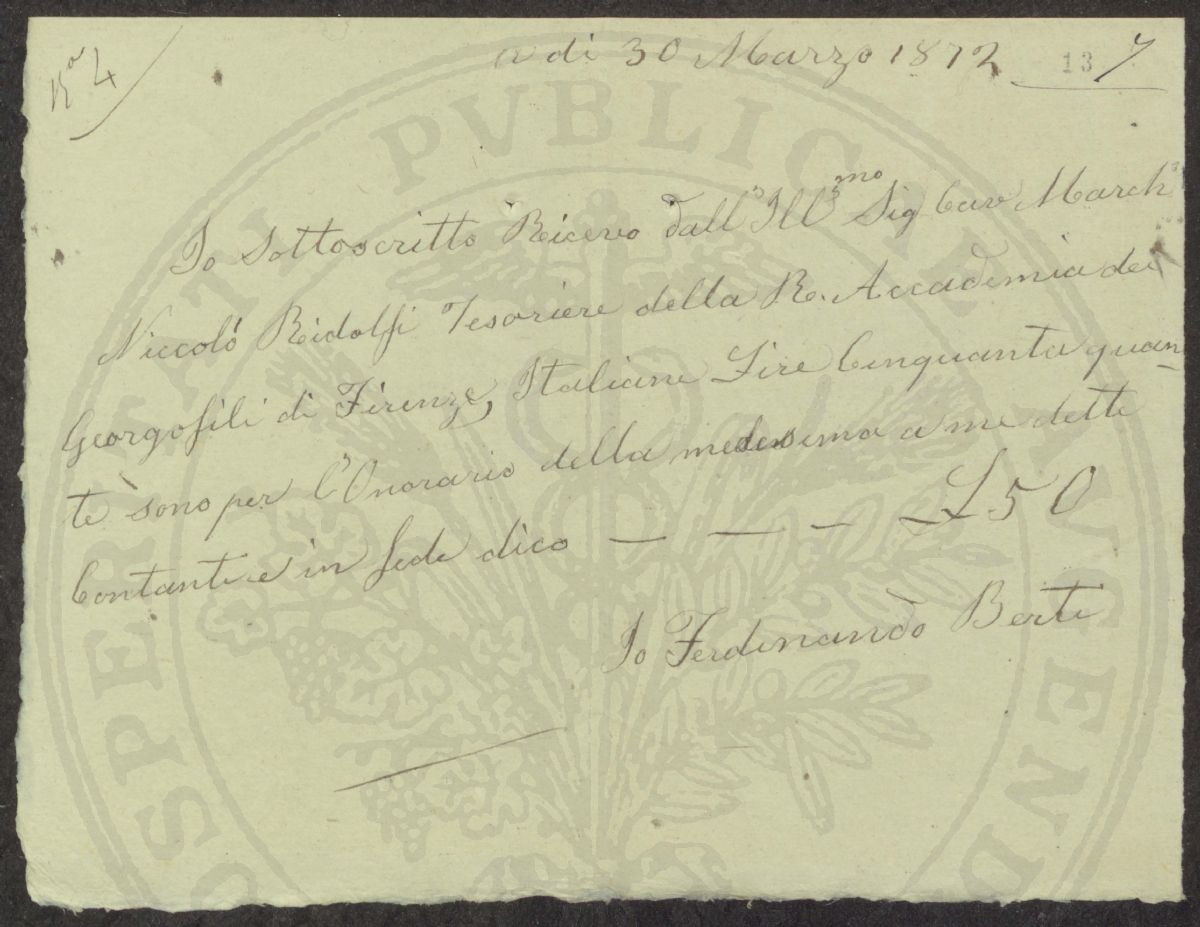 a di 30 Marzo 1872
13 7
4
Io Sottoscritto Ricevo dall'Ill.mo Sig Cav March
Niccolò Ridolfi Tesoriere della R. Accademia dei
Georgofili di Firenze, Italiane Lire Cinquanta quan-
te sono per l'Onorario della medesima a me dette
Contanti e in fede dico — — — £50
Io Ferdinando Berti
PROSPERITATI PVBLICAE AVGENDAE